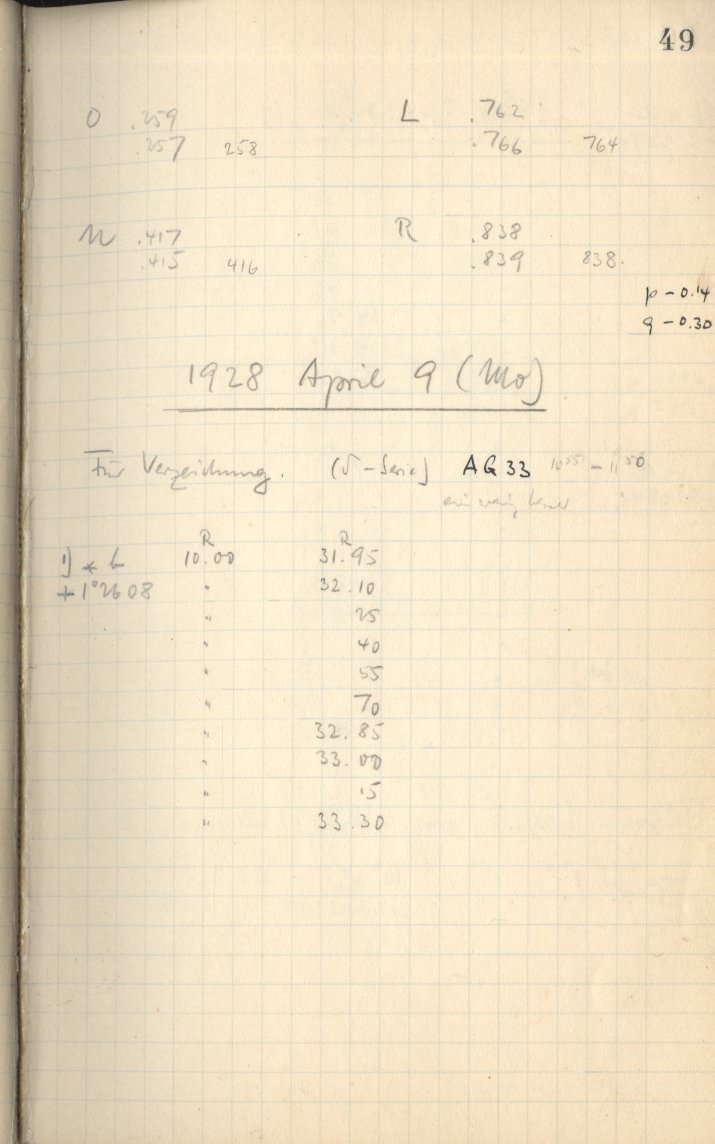 49
O .259 L .762
.257 258 .766 764
U .417 R .838
.415 416 .839 838.
p - 0.14
q - 0.30
1928 April 9 (Mo)
Für Verzeichnung. (√-Serie) AG 33 10 55 - 11 50
ein wenig
R R
1) 10.00 31.95
+1°2608 " 32.10
" 25
" 40
" 55
" 70
" 32.85
" 33.00
" 15
" 33.30